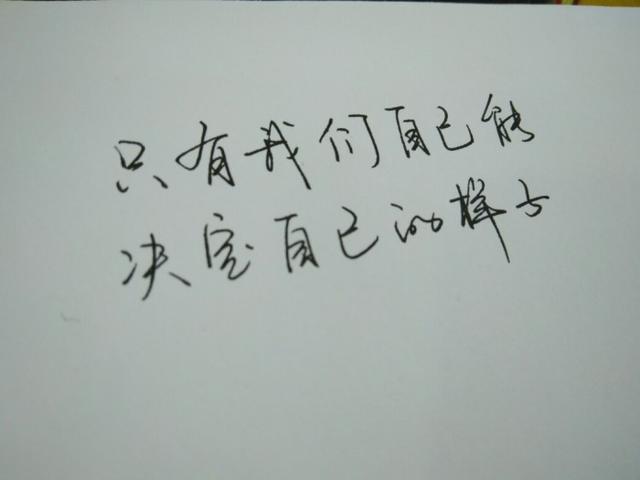 只有我们自己能
决定自己的样子